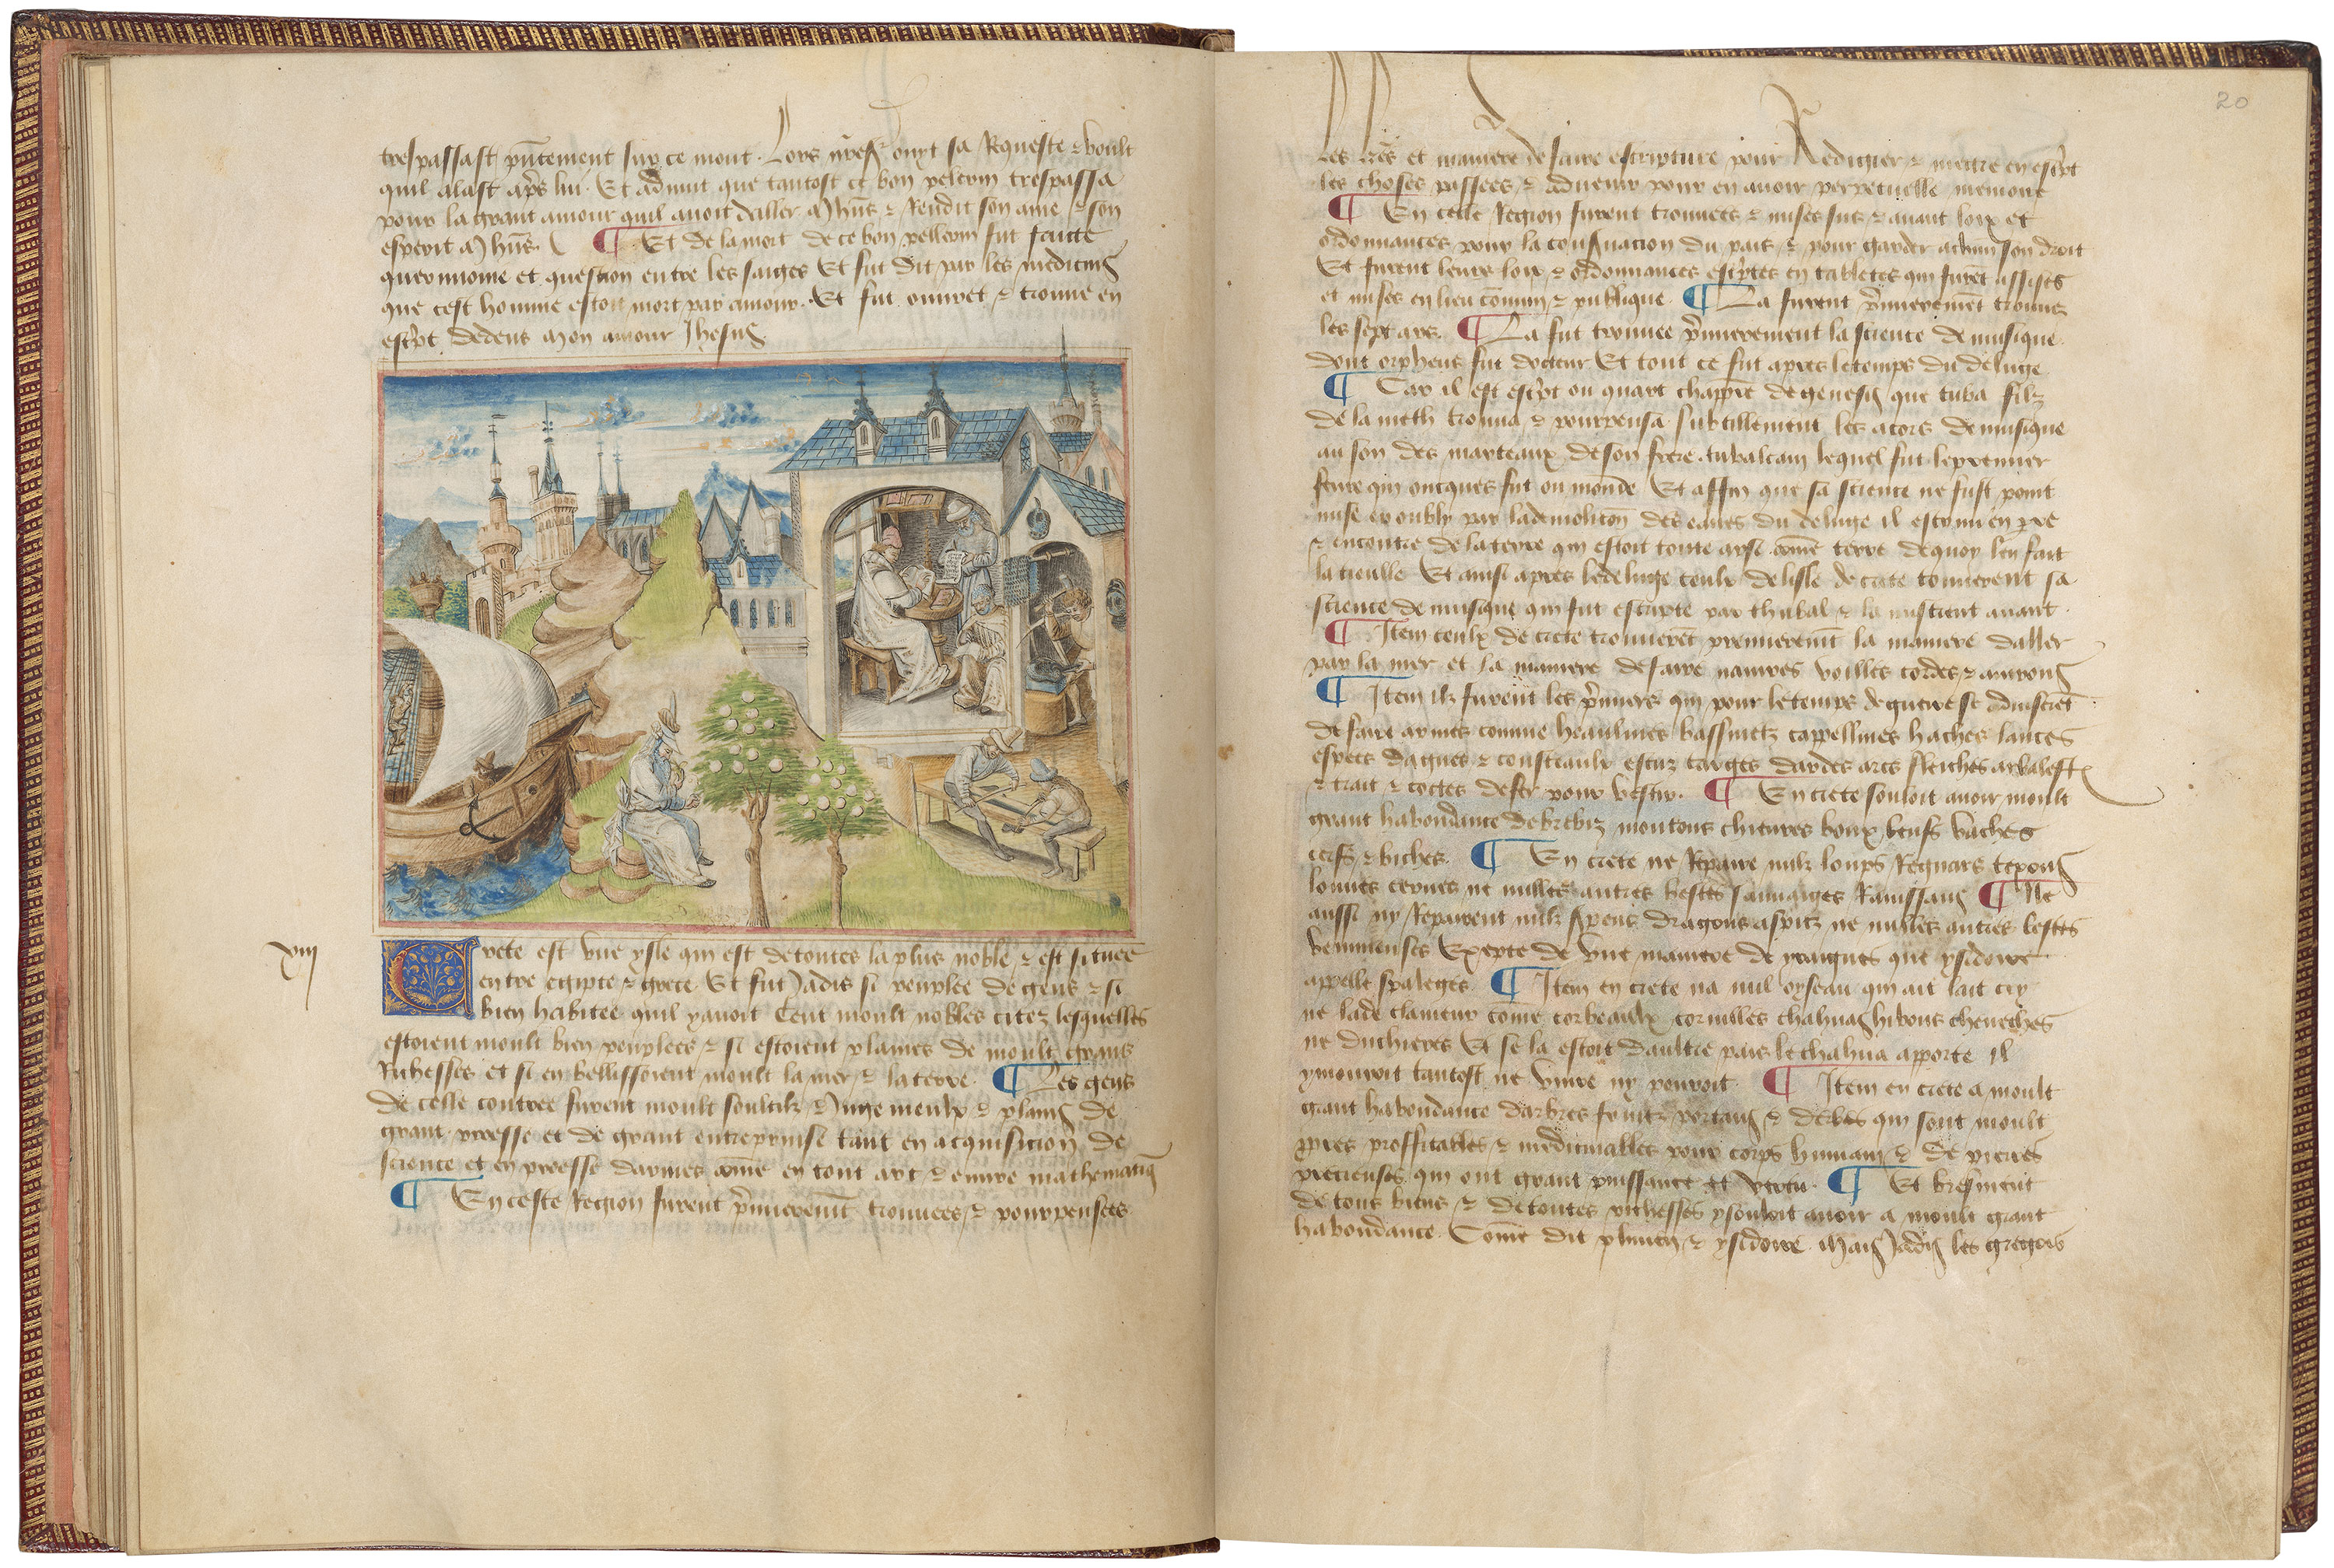 trespassast pñtement sur ce mont. Lors nr̃es ouyt sa Requeste ⁊ voult
quil alast apr̃s lui. Et aduint que tantost ce bon pelerin trespassa
pour la grant amour quil auoit daller a Jhũs ⁊ Rendit son ame ⁊ son
esperit a Jhũs. ¶ Et de la mort de ce bon pellerin fut faicte
et question entre les saiges Et fut dit par les medicins
que cest homme estoit mort par amour. Et fut ouuert ⁊ trouue en
escr̃pt dedens Mon amour Jhesus
xiij
Crete est vne ysle qui est de toutes la plus noble ⁊ est situee
entre egipte ⁊ grece Et fut Jadis si peuplee de gens ⁊ si
bien habitee quil y auoit Cent moult nobles citez lesquelles
estoient moult bien peuplees ⁊ si estoient plaines de moult grans
Richesses et si en bellissoient moult la mer ⁊ la terre. ¶ Les gens
de celle contree furent moult soultilz ⁊ Ingenieulx ⁊ plains de
grant proesse et de grant entreprinse tant en acquisicion de
science et en proesse darmes cõme en tout art ⁊ euure mathematiq
¶ En ceste Region furent pr̃mierem̃t trouuees ⁊ pourpensees
20
les lr̃es et maniere de faire escripture pour Rediger ⁊ mectre en escr̃pt
les choses passees ⁊ aduenir pour en auoir perpetuelle memoire
¶ En celle Region furent trouuees ⁊ mises sus ⁊ auant loix et
ordonnances pour la conseruacion du pais ⁊ pour garder a chũn son droit
Et furent leurs loix ⁊ ordonnances escr̃ptes en tabletes qui furẽt assises
et mises en lieu cõmun ⁊ publique ¶ La furent pr̃mieremẽt trouuez
les sept ars. ¶ La fut trouuee pr̃mierement la science de musique
dont orpheus fut docteur Et tout ce fut apres le temps du deluge
¶ Car il est escr̃pt ou quart chappr̃e de genesis que tuba filz
de lameth trouua ⁊ pourpensa subtillement les acors de musique
au son des marteaux de son frere tubalcain lequel fut le premier
feure qui oncques fut ou monde Et affin que sa science ne fust point
mise en oubly par la demoliciõ des eaues du deluge il escriui en pr̃e
⁊ encontre de la terre qui estoit toute arse cõme terre de quoy len fait
la tieulle Et ainsi apres le deluge ceulx de lisle de crete trouuerent sa
science de musique qui fut escripte par thubal ⁊ la mistrent auant
¶ Item ceulx de crete trouuerẽt premierem̃t la maniere daller
par la mer et la maniere de faire nauires voilles cordes ⁊ auirons
¶ Item ilz furent les pr̃miers qui pour le temps de guerre se aduiserẽt
de faire armes comme heaulmes bassinetz cappellines haches lances
espees dagues ⁊ cousteaulx escuz targes dardes arcs fleiches arbalestes
⁊ trait ⁊ coctes de fer pour vestir. ¶ En crete souloit auoir moult
grant habondance de brebiz moutons chieures boucs beufs vaches
cerfs ⁊ biches. ¶ En crete ne Repaire nulz loups Regnars
ne nulles autres bestes sauuaiges Rauissans ¶ Ne
aussi ny Repairent nulz sp̃ens dragons aspitz ne nulles autres bestes
venimeuses Excepte de vne maniere de yraignes que ysidoire
appelle spaleges. ¶ Item en crete na nul oyseau qui ait lait cry
ne lade clameur cõme corbeaulx cornilles chahuas hiboux cheueches
ne duchieres Et se la estoit daultre pais le chahua apporte il
y mouroit tantost ne viure ny pouroit. ¶ Item en crete a moult
grant habondance darbres fruitz portans ⁊ derbes qui sont moult
pr̃pres proffitables ⁊ medicinalles pour corps humain ⁊ de pierres
precieuses qui ont grant puissance et vertu. ¶ Et briefment
de tous biens ⁊ de toutes richesses y souloit auoir a moult grant
habondance. Cõme dit plinien ⁊ ysidoire Mais Jadis les gregois